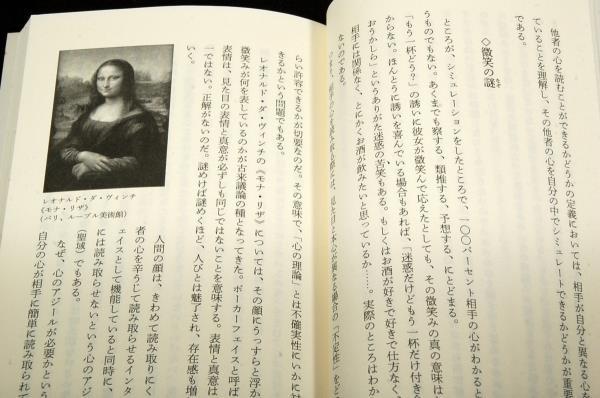 他者の心を読むことができるかどうかの定義においては、相手が自分と異なる心を
ていることを理解し、その他者の心を自分の中でシミュレートできるかどうかが重要
である。
◇微笑の謎
なぞ
ところが、シミュレーションをしたところで、一〇〇パーセント相手の心がわかると
うものでもない。あくまでも察する、類推する、予想する、にとどまる。
「もう一杯どう?」の誘いに彼女が微笑んで応えたとしても、その微笑みの真の意味は
からない。ほんとうに誘いを喜んでいる場合もあれば、「迷惑だけどもう一杯だけ付き
おうかしら」というありがた迷惑の苦笑もある。もしくはお酒が好きで好きで仕方なく、
相手には関係なく、とにかくお酒が飲みたいと思っているか……。実際のところはわか
ないのである。
らい許容できるかが切要なのだ。その意味で、「心の理論」とは不確実性にいかには
きるかという問題でもある。
レオナルド・ダ・ヴィンチの《モナ・リザ》については、その顔にうっすらと浮か
微笑みが何を表しているのかが古来議論の種となってきた。ポーカーフェイスと呼ば
表情は、見た目の表情と真意が必ずしも同じではないことを意味する。表情と真意は
一ではない。正解がないのだ。謎めけば謎めくほど、人びとは魅了され、存在感も増
いく。
人間の顔は、きわめて読み取りにく
者の心を辛うじて読み取らせるインタ
ェイスとして機能していると同時に、
には読み取らせないという心のアジ
(聖域)でもある。
なぜ、心のアジールが必要かという
自分の心が相手に簡単に読み取られて
レオナルド・ダ・ヴィンチ
《モナ・リザ》
(パリ、ルーブル美術館)